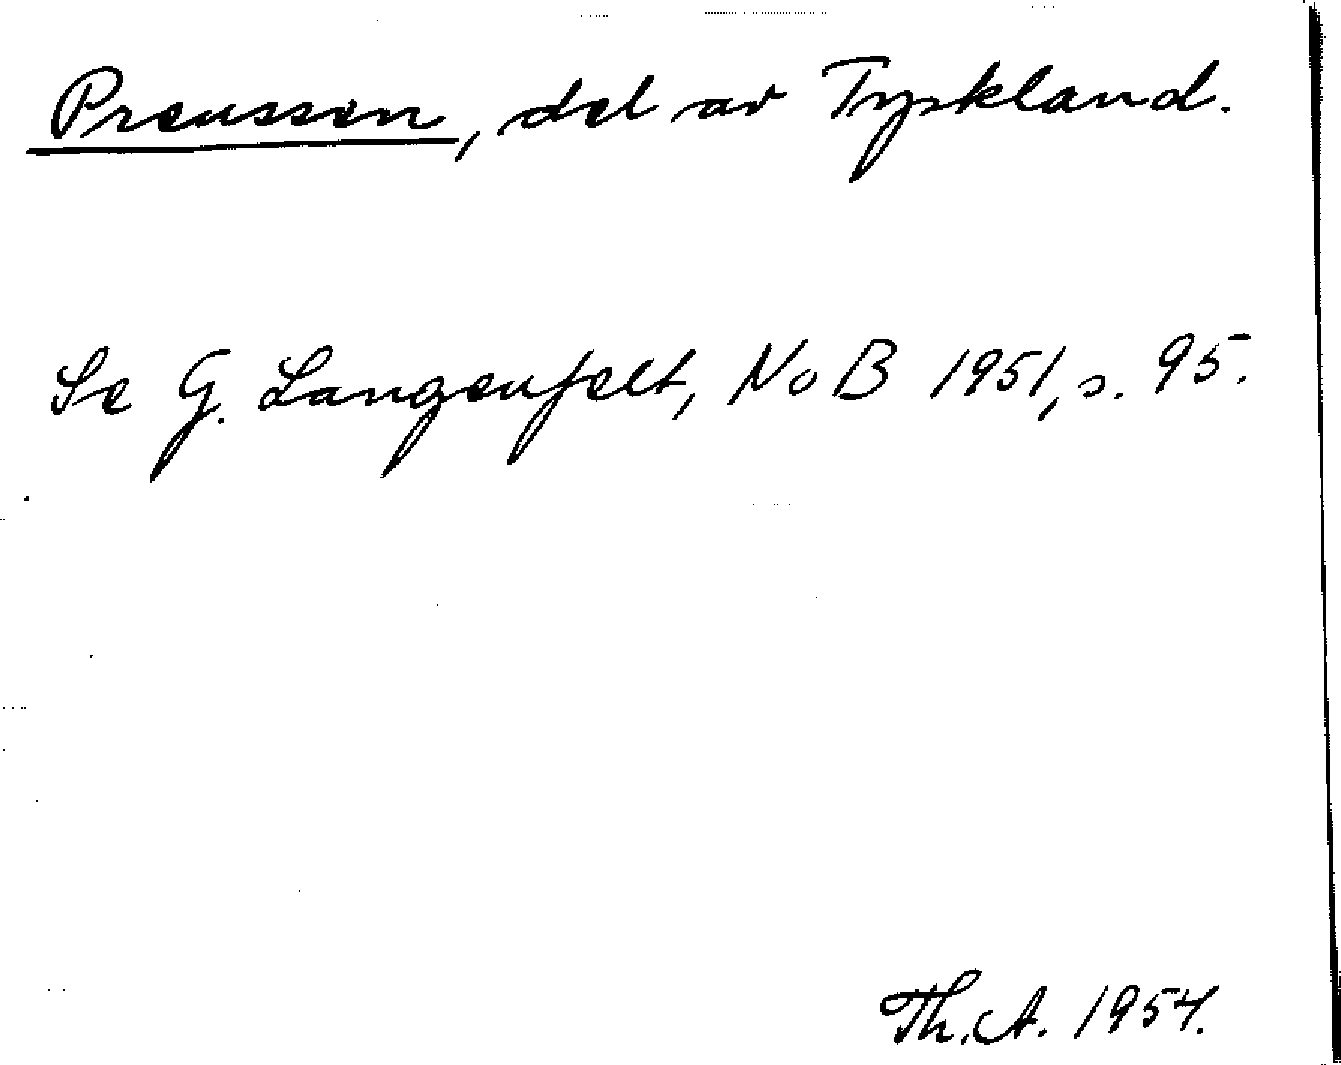 Preussen, del av Tyskland.
Se G. Langenfelt, NoB 1951, s. 95.
Th. A. 1954.